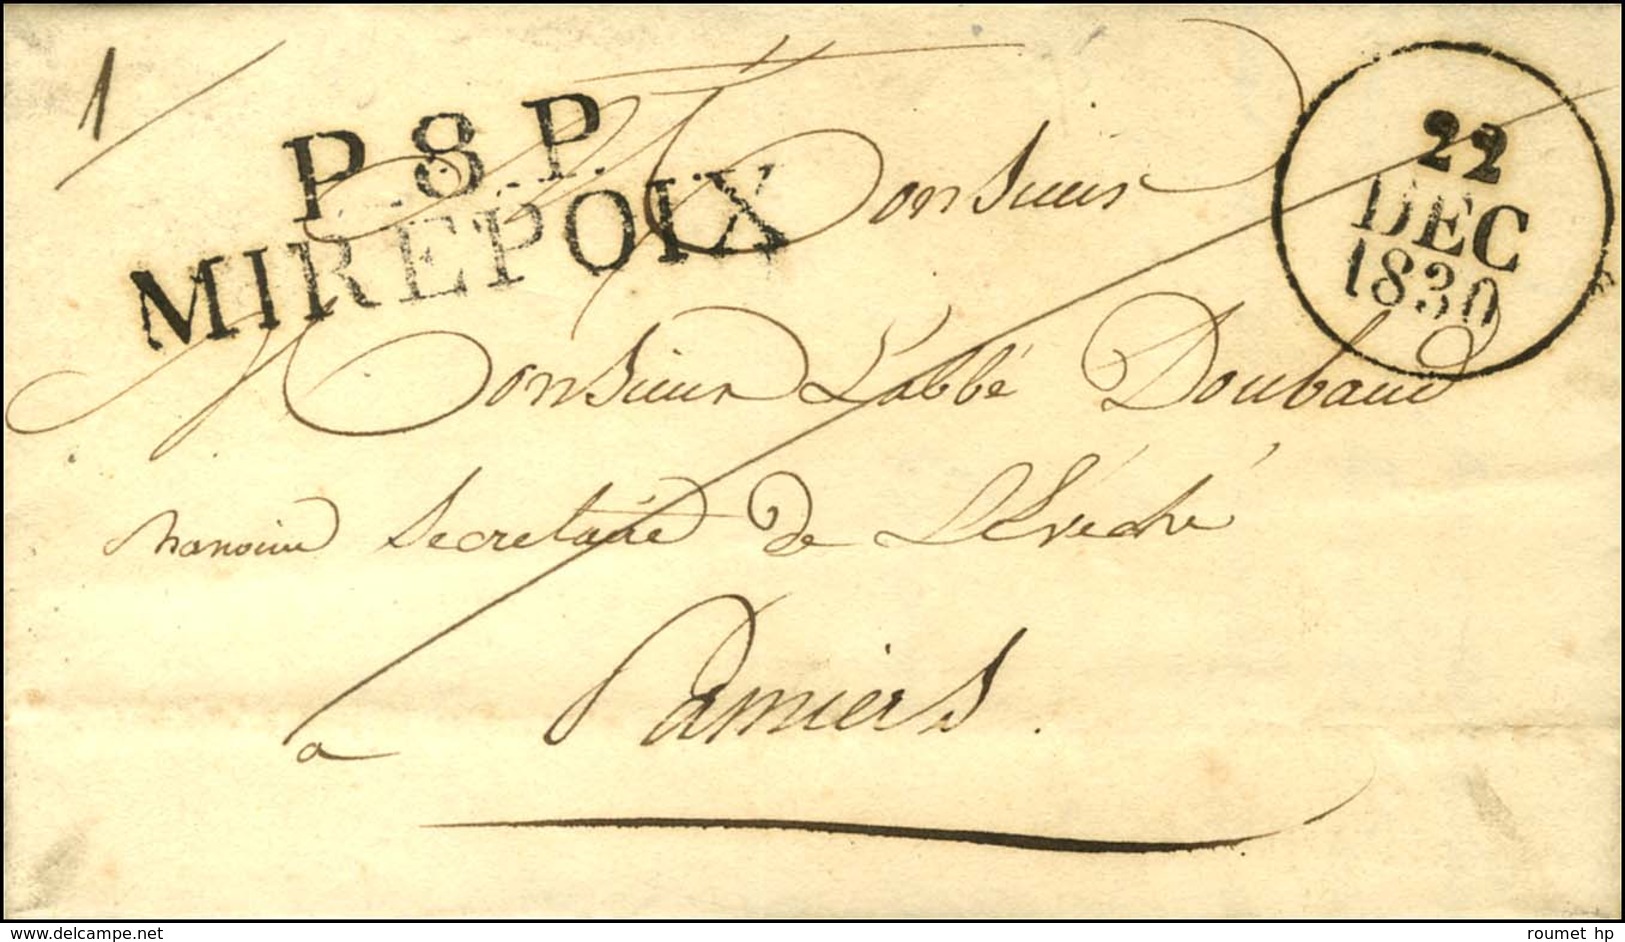 1
P. 8. P.
MIREPOIX
22
DEC
1830
Monsieur
Monsieur L'abbé Doubaud
Secretaire de L'Evéché
a Pamiers.
delcampe.net
roumet hp